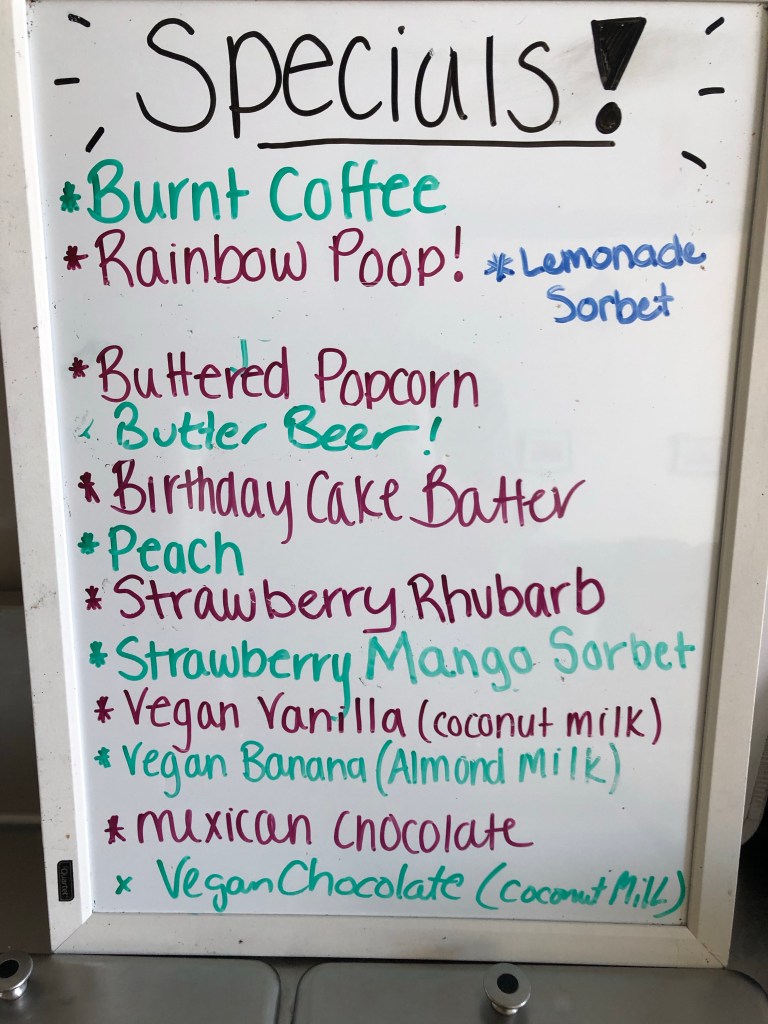 Specials!
*Burnt Coffee
*Rainbow Poop!
*Lemonade
Sorbet
*Buttered Popcorn
Butter Beer!
*Birthday Cake Batter
*Peach
*Strawberry Rhubarb
*Strawberry Mango Sorbet
*Vegan Vanilla (coconut milk)
*Vegan Banana (Almond Milk)
*mexican chocolate
x Vegan Chocolate (coconut Milk)
Quartet